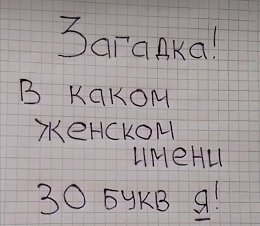 Загадка!
В каком
женском
имени
30 букв я!